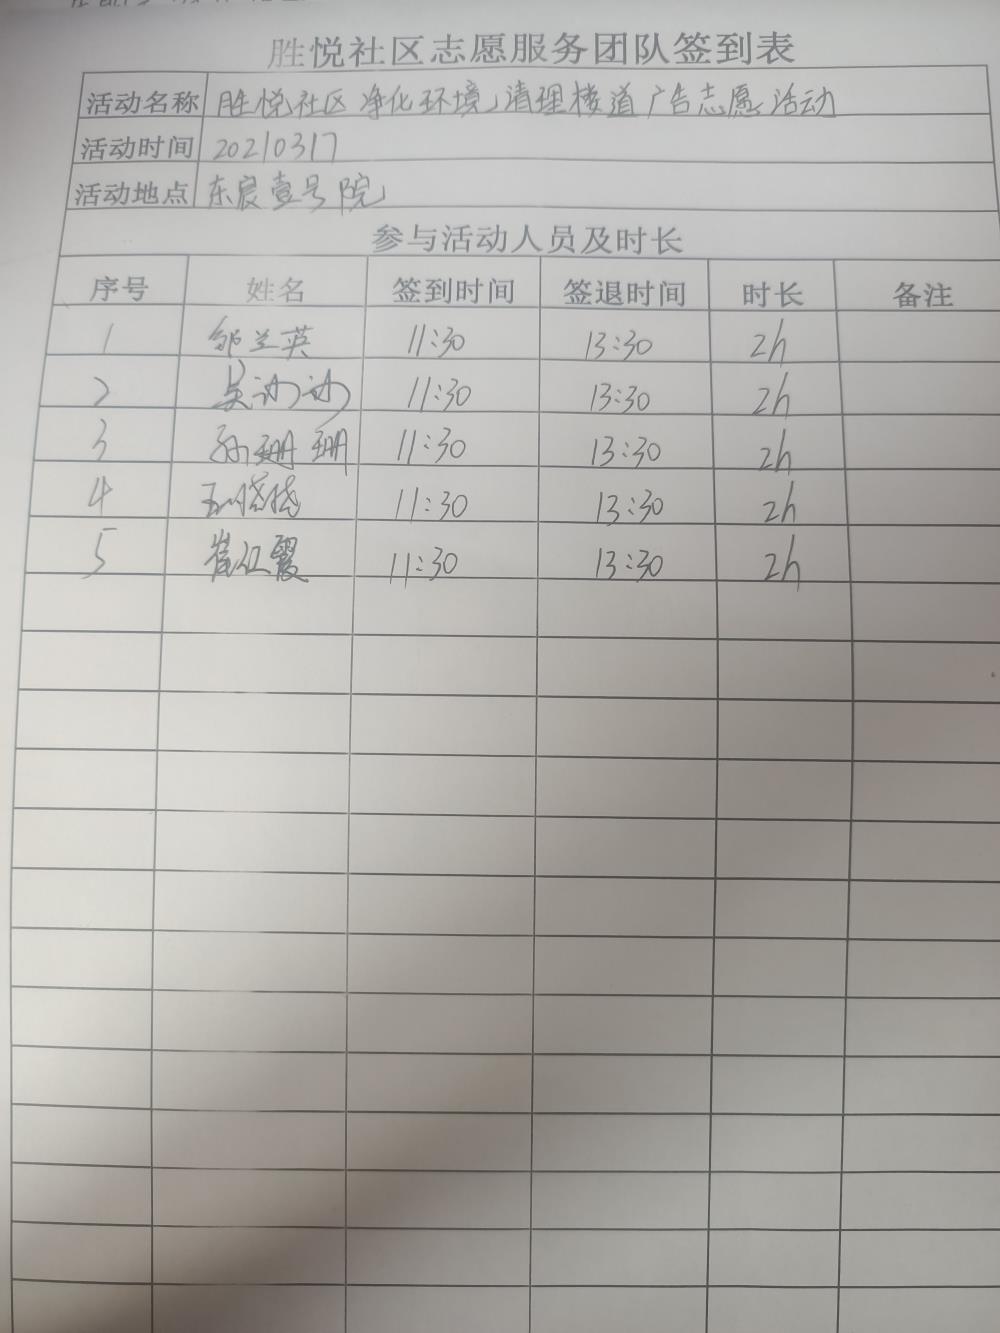 胜悦社区志愿服务团队签到表
活动名称 胜悦社区净化环境,清理楼道广告志愿活动
活动时间 20210317
活动地点 东宸壹号院
参与活动人员及时长
序号 姓名 签到时间 签退时间 时长 备注
1 邹兰英 11:30 13:30 2h
2 吴 11:30 13:30 2h
3 孙珊珊 11:30 13:30 2h
4 11:30 13:30 2h
5 崔红霞 11:30 13:30 2h